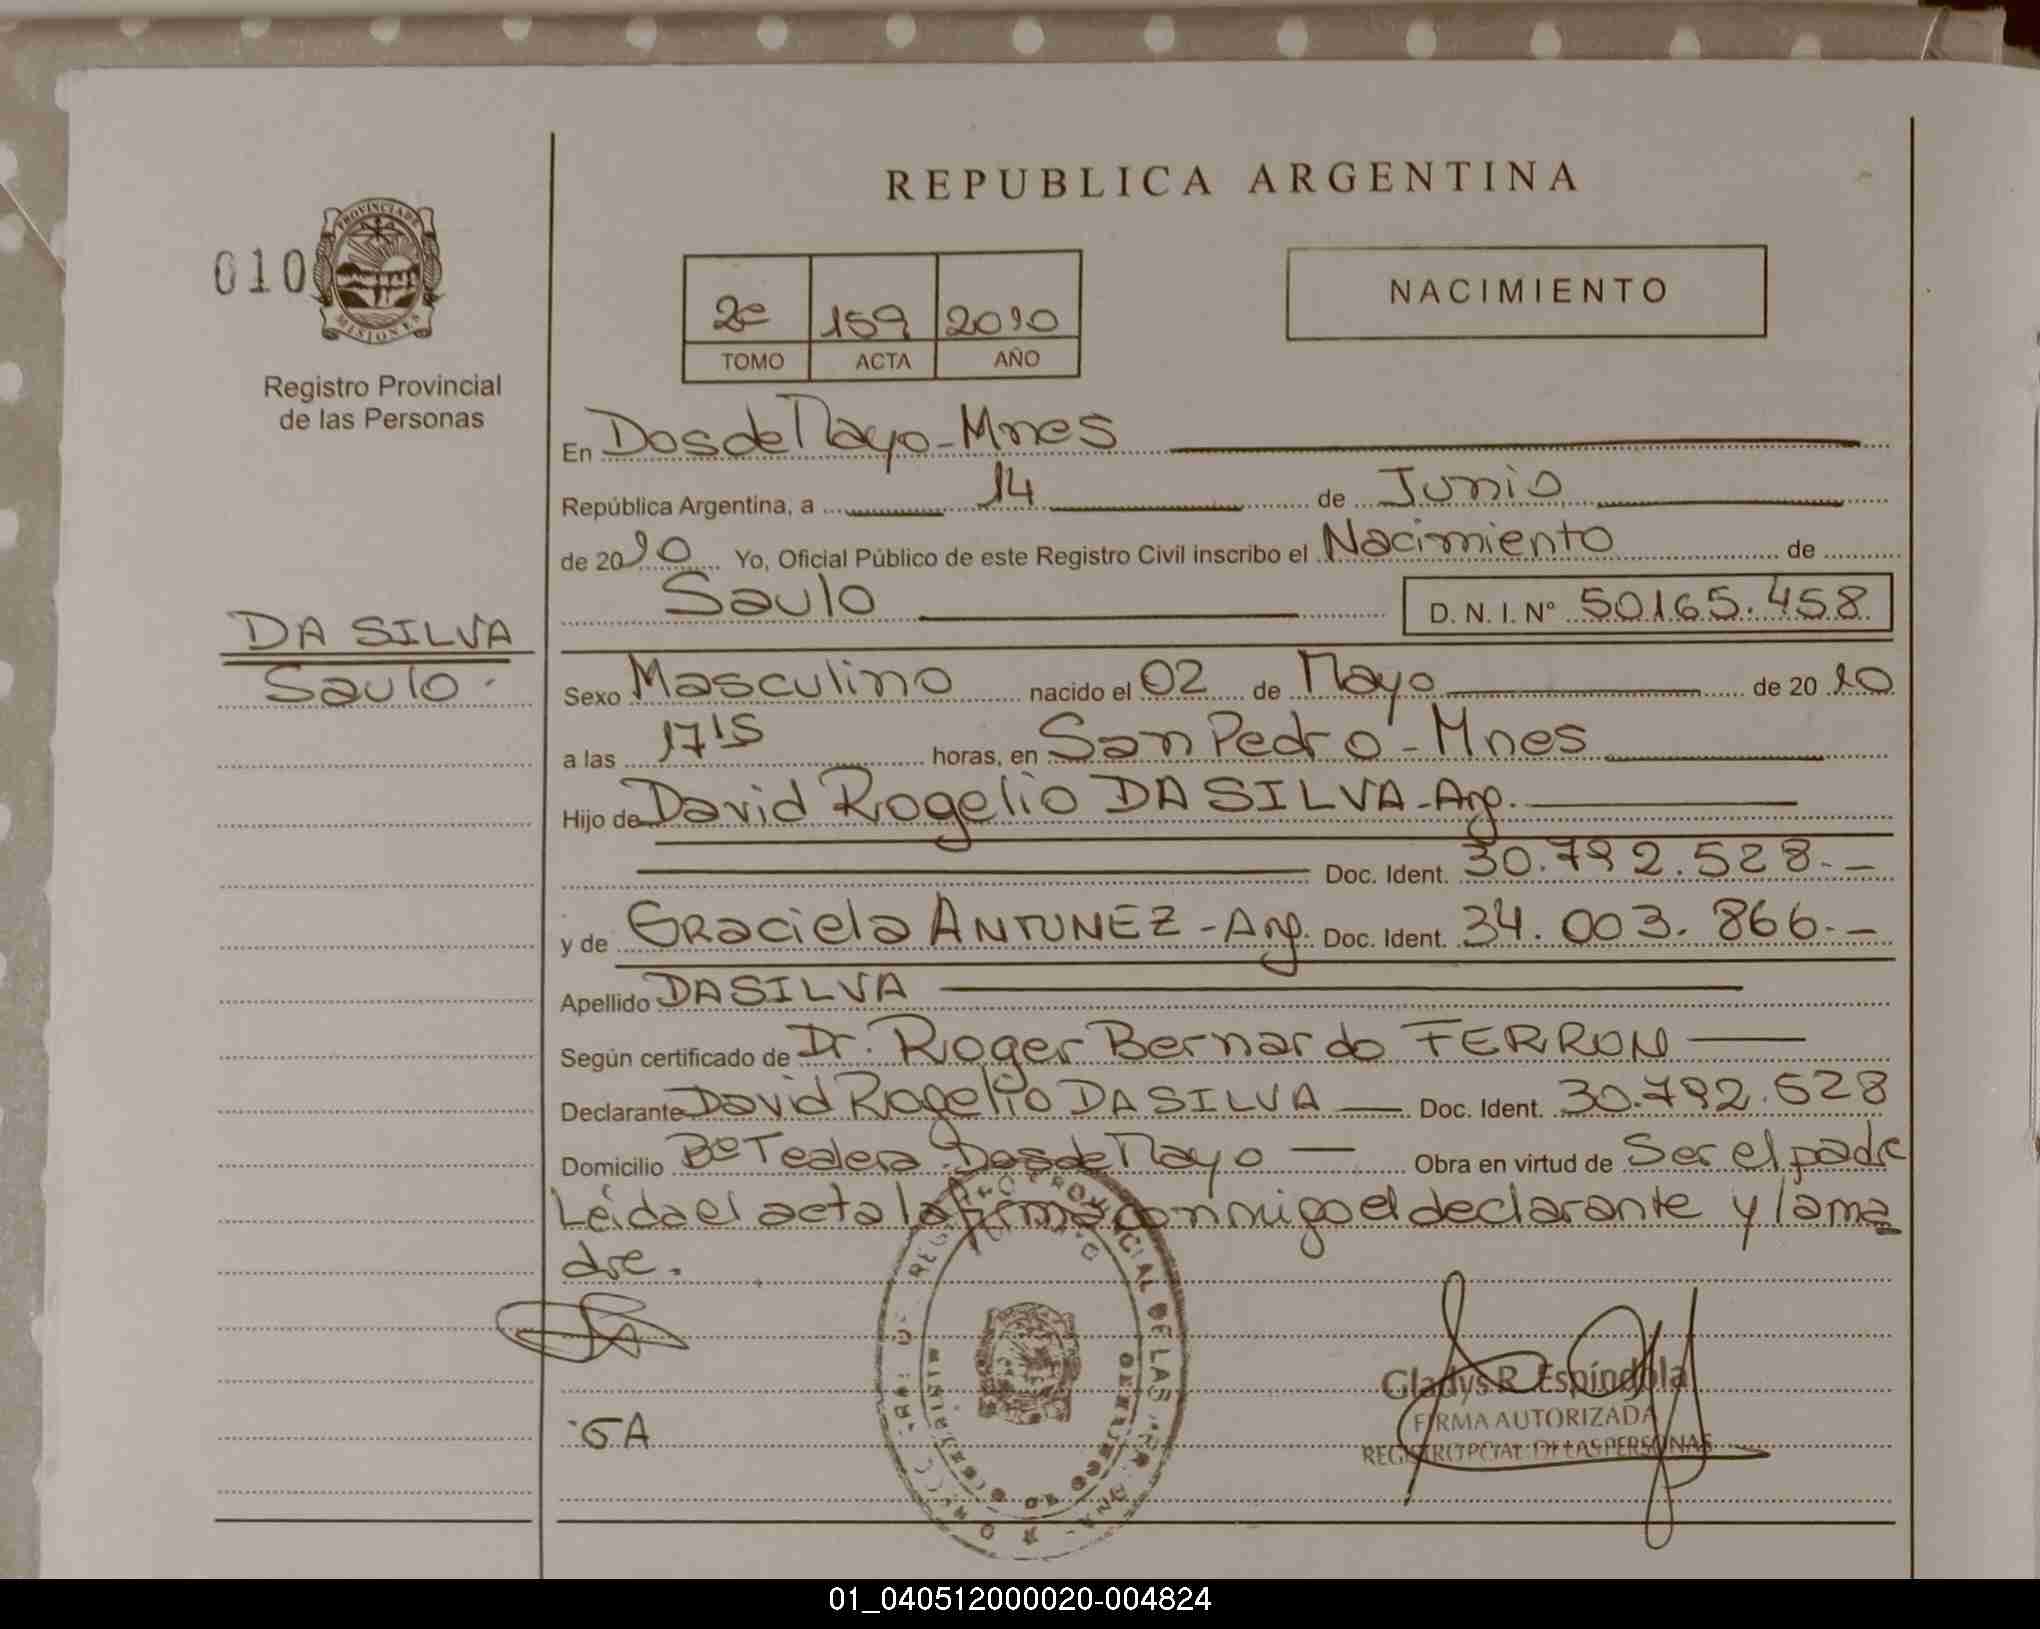 REPUBLICA ARGENTINA
010
PROVINCIA DE
MISIONES
Registro Provincial
de las Personas
2º 159 2010
TOMO ACTA AÑO
NACIMIENTO
En Dos de Mayo - Mnes
República Argentina, a 14 de Junio
de 2010 Yo, Oficial Público de este Registro Civil inscribo el Nacimiento de
Saulo D. N. I. Nº 50165.458
DA SILVA
Saulo.
Sexo Masculino nacido el 02 de Mayo de 2010
a las 17'15 horas, en San Pedro - Mnes
Hijo de David Rogelio DA SILVA - Arg.
Doc. Ident. 30.792.528.-
y de Graciela ANTUNEZ - Arg. Doc. Ident. 34.003.866.-
Apellido DA SILVA
Según certificado de Dr. Roger Bernardo FERRON
Declarante David Rogelio DA SILVA Doc. Ident. 30.792.528
Domicilio Bº Tealera Dos de Mayo Obra en virtud de Ser el padre
Leida el acta la firma conmigo el declarante y la ma
dre.
GA
Gladys R. Espíndola
FIRMA AUTORIZADA
REGISTRO PCIAL. DE LAS PERSONAS
01_040512000020-004824